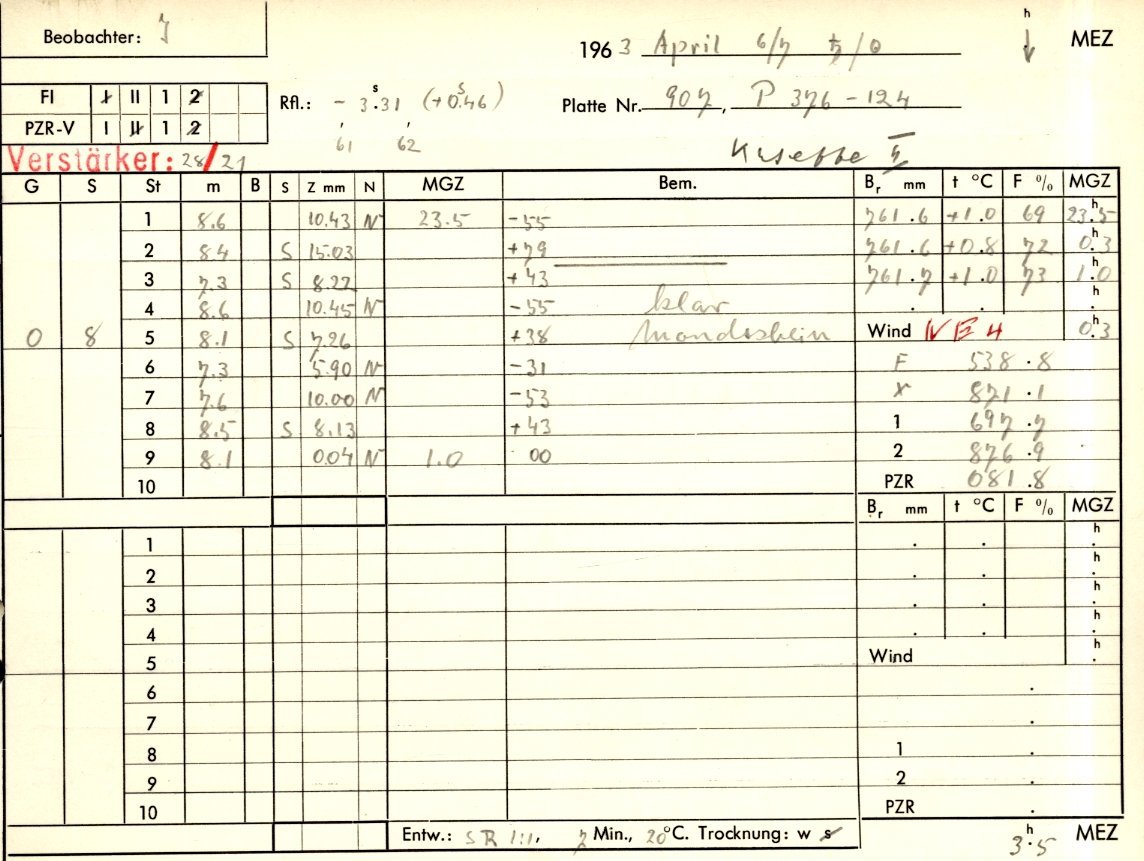 Beobachter: J
1963 April 6/7 ♄/☉
h
MEZ
FI I II 1 2
PZR-V I II 1 2
Rfl.: - 3.31 (+0.46)
s s
61 62
Platte Nr. 907, P 376-124
Verstärker: 28/21
Kasette II
G S St m B S Z mm N MGZ Bem. Br mm t °C F % MGZ
1 8.6 10.43 N 23.5 -55 761.6 +1.0 69 23.5
2 8.4 S 15.03 +79 761.6 +0.8 72 0.3
3 7.3 S 8.22 +43 761.7 +1.0 73 1.0
4 8.6 10.45 N -55 klar . . h
0 8 5 8.1 S 7.26 +38 Mondschein Wind NE 4 0.3
6 7.3 5.90 N -31 F 538.8
7 7.6 10.00 N -53 X 871.1
8 8.5 S 8.13 +43 1 697.7
9 8.1 0.04 N 1.0 00 2 876.9
10 PZR 081.8
Br mm t °C F % MGZ
1 . . h
2 . . h
3 . . h
4 . . h
5 Wind h
6 .
7 .
8 1 .
9 2 .
10 PZR .
Entw.: SR 1:1, 7 Min., 20°C. Trocknung: w s
3.5 h MEZ